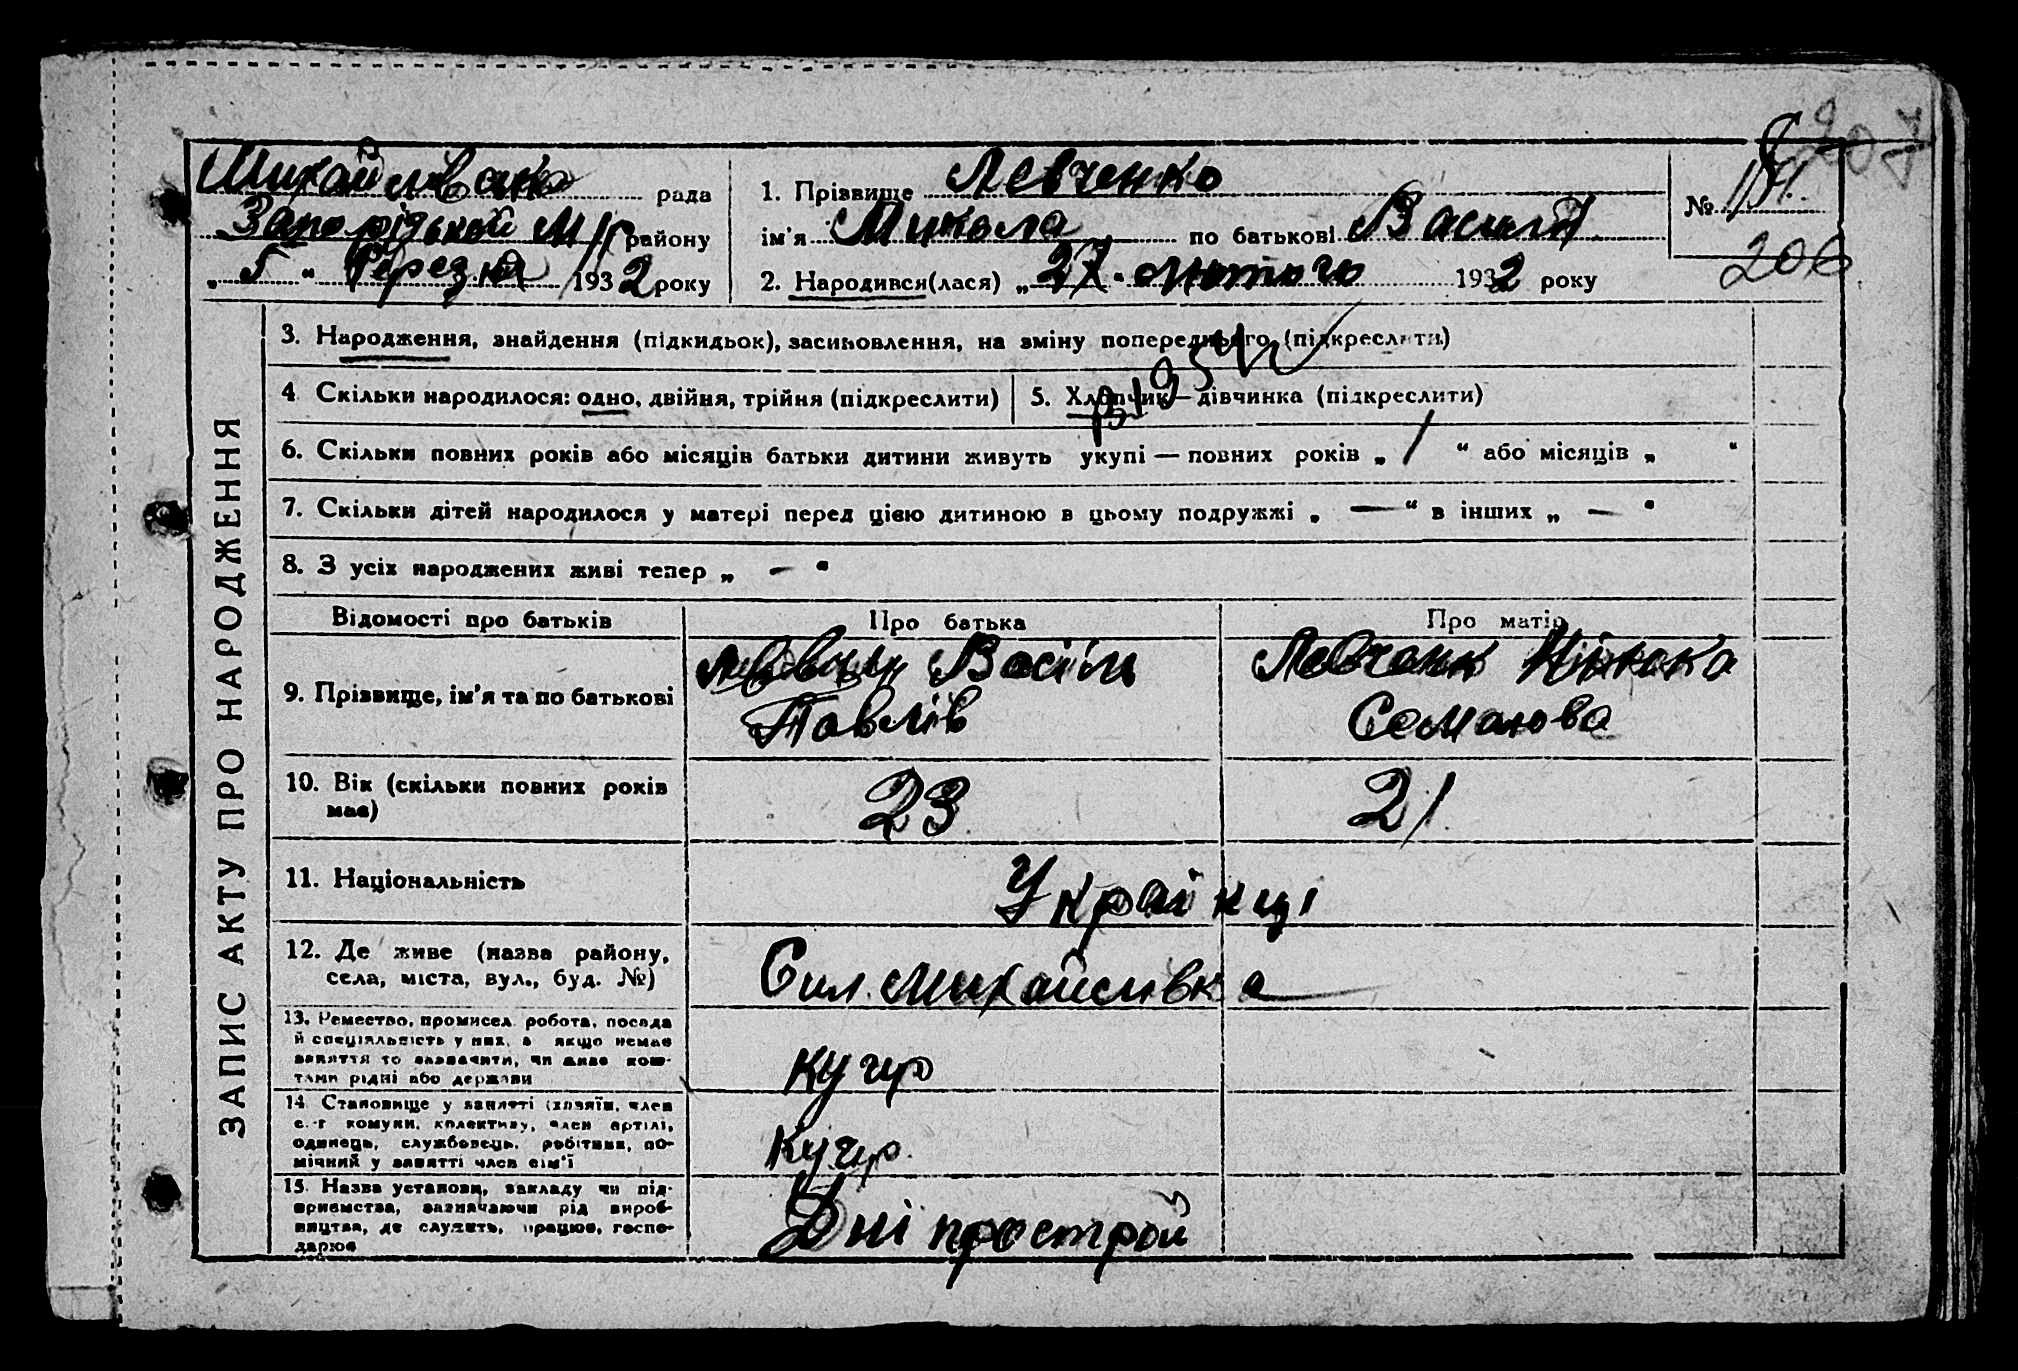 рада
Запорізької М/р району
„ 5 " березня 1932 року
1. Прізвище Левченко
ім'я Микола по батькові
2. Народився(лася) „ 27. лютого 1932 року
№
206
ЗАПИС АКТУ ПРО НАРОДЖЕННЯ
3. Народження, знайдення (підкидьок), засиновлення, на зміну попереднього (підкреслити)
4 Скільки народилося: одно, двійня, трійня (підкреслити)
5. Хлопчик — дівчинка (підкреслити)
6. Скільки повних років або місяців батьки дитини живуть укупі — повних років „ 1 " або місяців „ "
7. Скільки дітей народилося у матері перед цією дитиною в цьому подружжі „ — " в інших „ — "
8. З усіх народжених живі тепер „ — "
Відомості про батьків Про батька Про матір
9. Прізвище, ім'я та по батькові
Васіль
Павлів
Семанова
10. Вік (скільки повних років має)
23 21
11. Національність
Українці
12. Де живе (назва району,
села, міста, вул., буд. №)
Сил. Михайсливка
13. Ремество, промисел, робота, посада
й спеціяльність у них, а якщо немає
заняття то зазначити, чи живе кош-
тами рідні або держави
Кучер
14. Становище у занятті (хазяїн, член
с.-г комуни, колективу, член артілі,
одинець, службовець, робітник, по-
мічний у занятті член сім'ї
Кучер.
15. Назва установи, закладу чи під-
приємства, зазначаючи рід вироб-
ництва, де служить, працює, госпо-
дарює
Дніпрострой